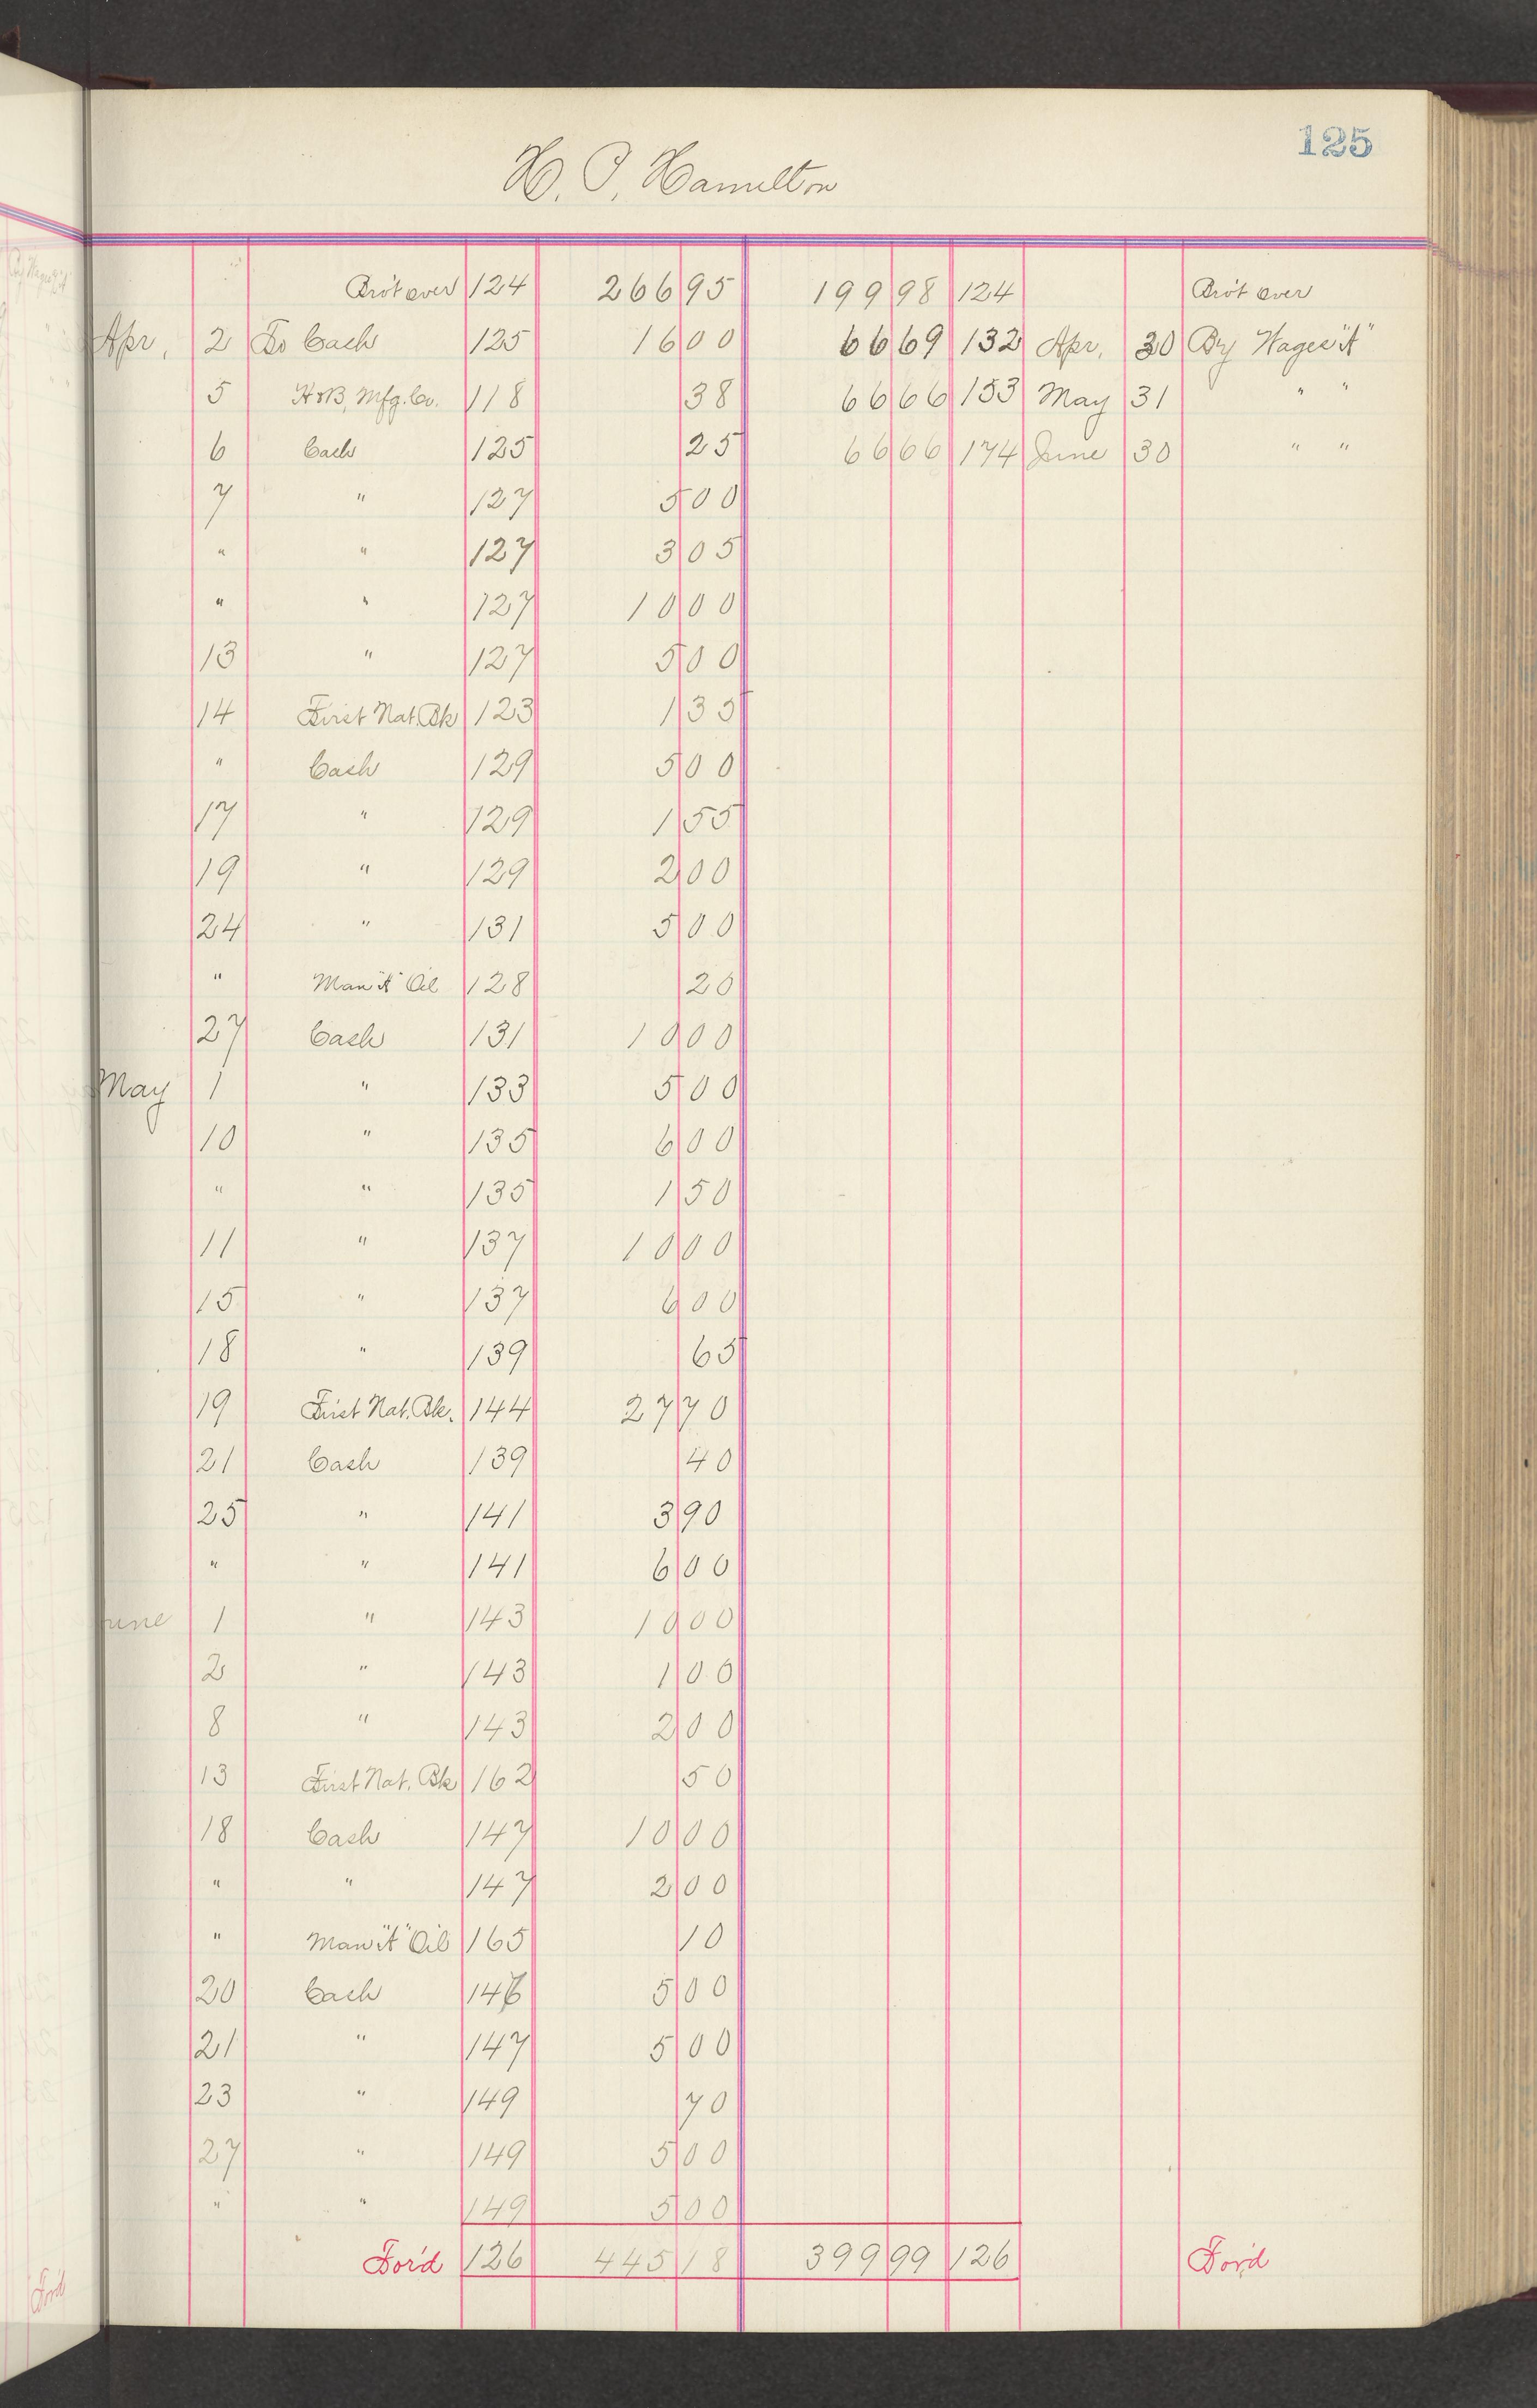 125
H. P. Hamilton
Bro't over 124 266 95 199 98 124 Bro't over
Apr, 2 To Cash 125 16 00 66 69 132 Apr, 30 By Wages "A"
5 H & B, Mfg. Co. 118 38 66 66 153 May 31 " "
6 Cash 125 25 66 66 174 June 30 " "
7 " 127 5 00
" " 127 3 05
" " 127 10 00
13 " 127 5 00
14 First Nat. Bk 123 1 35
" Cash 129 5 00
17 " 129 1 55
19 " 129 2 00
24 " 131 5 00
" Man "A" Oil 128 20
27 Cash 131 10 00
May 1 " 133 5 00
10 " 135 6 00
" " 135 1 50
11 " 137 10 00
15 " 137 6 00
18 " 139 65
19 First Nat. Bk. 144 27 70
21 Cash 139 40
25 " 141 3 90
" " 141 6 00
June 1 " 143 10 00
2 " 143 1 00
8 " 143 2 00
13 First Nat. Bk 162 50
18 Cash 147 10 00
" " 147 2 00
" Man "A" Oil 165 10
20 Cash 147 5 00
21 " 147 5 00
23 " 149 70
27 " 149 5 00
" " 149 5 00
For'd 126 445 18 399 99 126 For'd
For'd